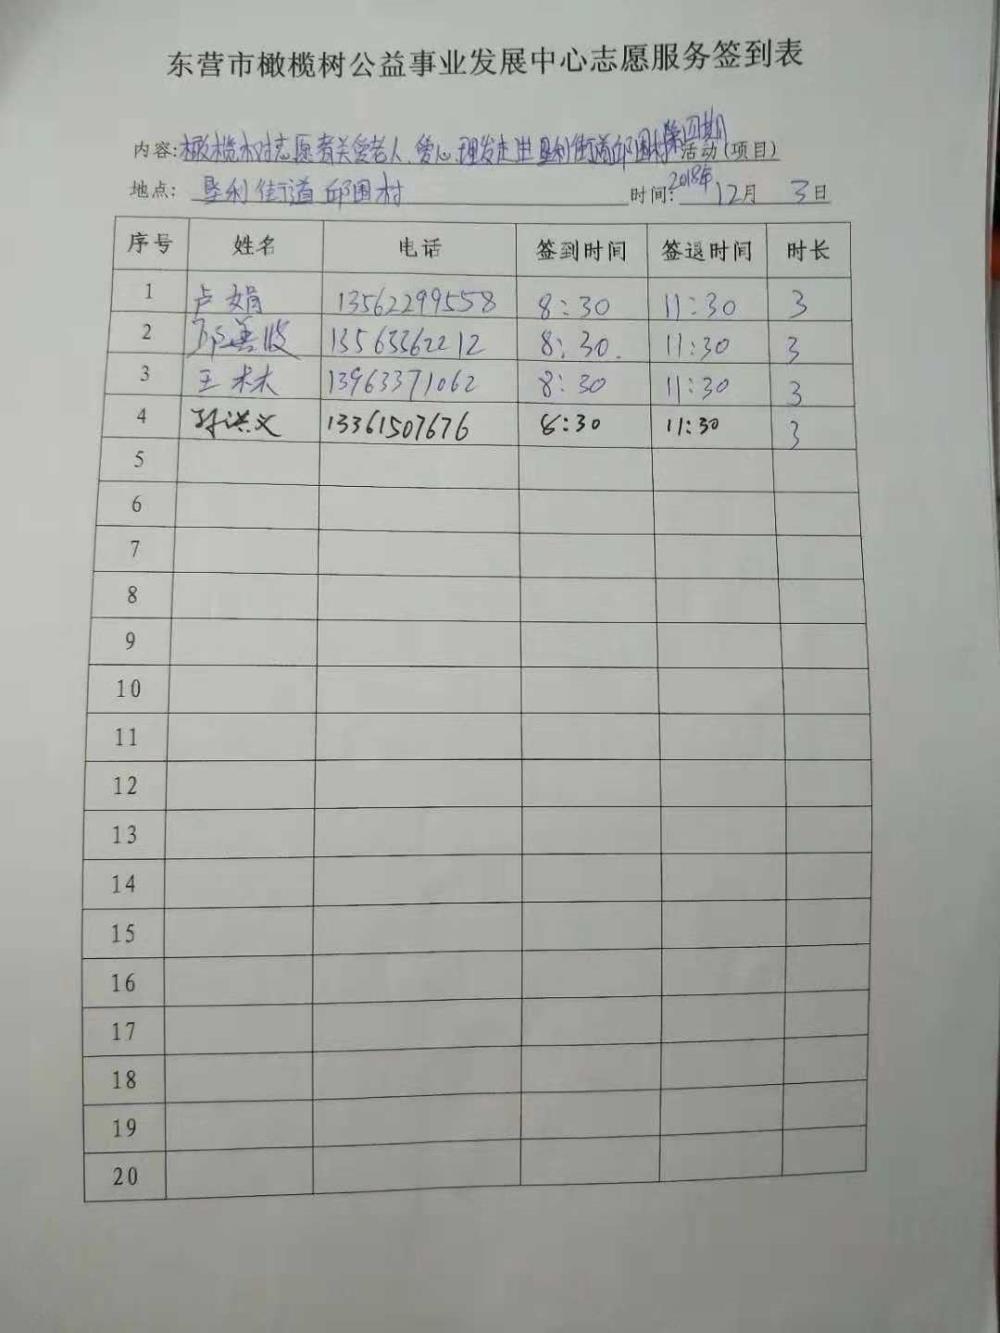 东营市橄榄树公益事业发展中心志愿服务签到表
内容:橄榄树志愿者关爱老人、爱心理发走进垦利街道邱围村第四期活动(项目)
地点:垦利街道邱围村 时间:2018年12月3日
序号 姓名 电话 签到时间 签退时间 时长
1 卢娟 13562299558 8:30 11:30 3
2 13563362212 8:30. 11:30 3
3 王林 13963371062 8:30 11:30 3
4 孙洪义 13361507676 8:30 11:30 3
5
6
7
8
9
10
11
12
13
14
15
16
17
18
19
20